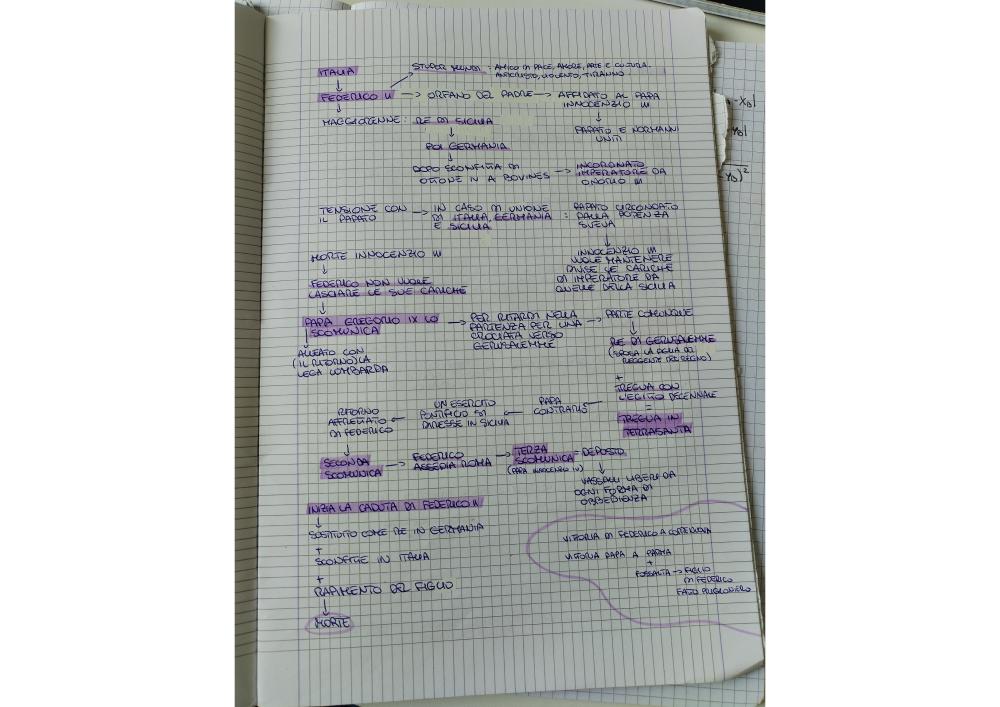 STUPOR MUNDI : AMICO DI PACE, AMORE, ARTE E CULTURA.
ITALIA
ANTICRISTO, VIOLENTO, TIRANNO.
FEDERICO II → ORFANO DEL PADRE → AFFIDATO AL PAPA
INNOCENZO III
MAGGIORENNE : RE DI SICILIA
PAPATO E NORMANNI
UNITI
POI GERMANIA
DOPO SCONFITTA DI
OTTONE IV A BOVINES → INCORONATO
IMPERATORE DA
ONORIO III
TENSIONE CON
IL PAPATO → IN CASO DI UNIONE
DI ITALIA, GERMANIA
E SICILIA : PAPATO CIRCONDATO
DALLA POTENZA
SVEVA
MORTE INNOCENZIO III
INNOCENZIO III
VUOLE MANTENERE
DIVISE LE CARICHE
DI IMPERATORE DA
QUELLE DELLA SICILIA
FEDERICO NON VUOLE
LASCIARE LE SUE CARICHE
PAPA GREGORIO IX LO
SCOMUNICA → PER RITARDI NELLA
PARTENZA PER UNA
CROCIATA VERSO
GERUSALEMME → PARTE COMUNQUE
ALLEATO CON
(IL RITORNO) LA
LEGA LOMBARDA
RE DI GERUSALEMME
(SPOSA LA FIGLIA DEL
REGGENTE DEL REGNO)
+
TREGUA CON
L'EGITTO DECENNALE
=
TREGUA IN
TERRASANTA
PAPA
CONTRARIS
UN ESERCITO
PONTIFICO SI
DIRESSE IN SICILIA
RITORNO
AFFRETTATO
DI FEDERICO
SECONDA
SCOMUNICA → FEDERICO
ASSEDIA ROMA → TERZA
SCOMUNICA = DEPOSTO
(PAPA INNOCENZO IV)
VASSALLI LIBERI DA
OGNI FORMA DI
OBBEDIENZA
INIZIA LA CADUTA DI FEDERICO II
SOSTITUITO COME RE IN GERMANIA
+
SCONFITTE IN ITALIA
+
RAPIMENTO DEL FIGLIO
MORTE
VITTORIA DI FEDERICO A CORTENUOVA
VITTORIA PAPA A PARMA
+
FOSSALTA → FIGLIO
DI FEDERICO
FATTO PRIGIONIERO